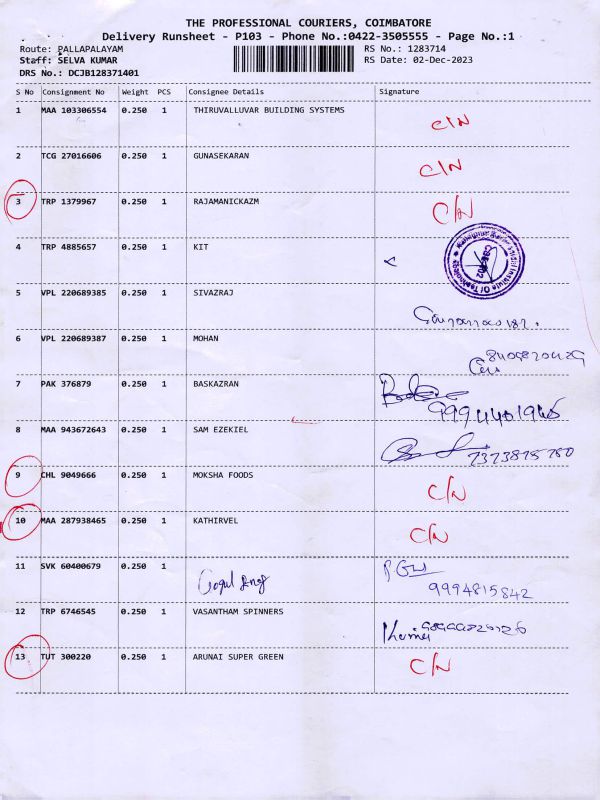 THE PROFESSIONAL COURIERS, COIMBATORE
Delivery Runsheet - P103 - Phone No.:0422-3505555 - Page No.:1
Route: PALLAPALAYAM RS No.: 1283714
Staff: SELVA KUMAR RS Date: 02-Dec-2023
DRS No.: DCJB128371401
S No Consignment No Weight PCS Consignee Details Signature
1 MAA 103306554 0.250 1 THIRUVALLUVAR BUILDING SYSTEMS C/N
2 TCG 27016606 0.250 1 GUNASEKARAN C/N
3 TRP 1379967 0.250 1 RAJAMANICKAZM C/N
4 TRP 4885657 0.250 1 KIT
Institute Of Technology
CBE-402
5 VPL 220689385 0.250 1 SIVAZRAJ
6 VPL 220689387 0.250 1 MOHAN
7 PAK 376879 0.250 1 BASKAZRAN
8 MAA 943672643 0.250 1 SAM EZEKIEL
9 CHL 9049666 0.250 1 MOKSHA FOODS C/N
10 MAA 287938465 0.250 1 KATHIRVEL C/N
11 SVK 60400679 0.250 1 9994815842
12 TRP 6746545 0.250 1 VASANTHAM SPINNERS
13 TUT 300220 0.250 1 ARUNAI SUPER GREEN C/N